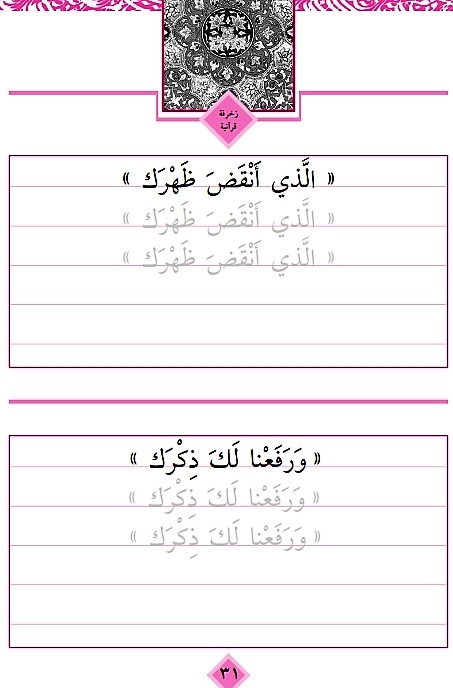 زخرفة
قرآنية
« الَّذي أَنْقَضَ ظَهْرَك »
« الَّذي أَنْقَضَ ظَهْرَك »
« الَّذي أَنْقَضَ ظَهْرَك »
« وَرَفَعْنا لَكَ ذِكْرَك »
« وَرَفَعْنا لَكَ ذِكْرَك »
« وَرَفَعْنا لَكَ ذِكْرَك »
٣١